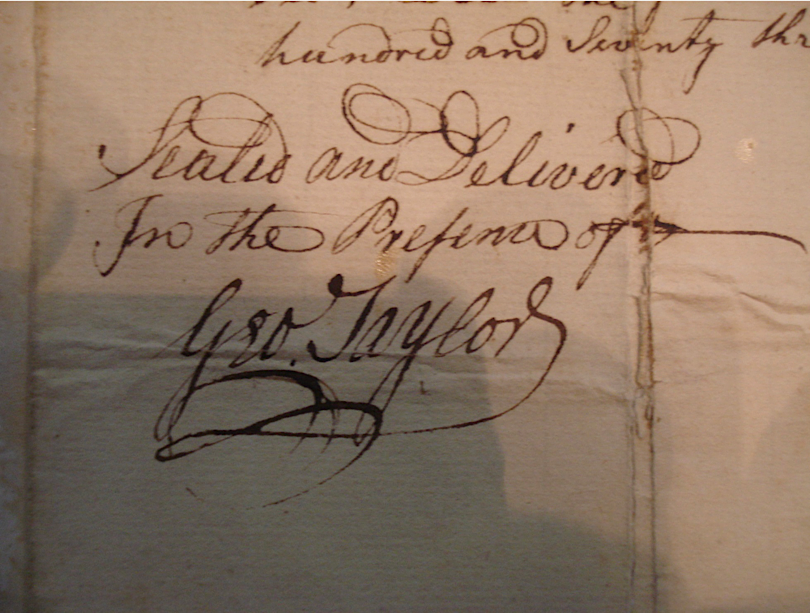 the
hundred and Seventy thr
Sealed and Delivered
In the Presence of
Geo. Taylor